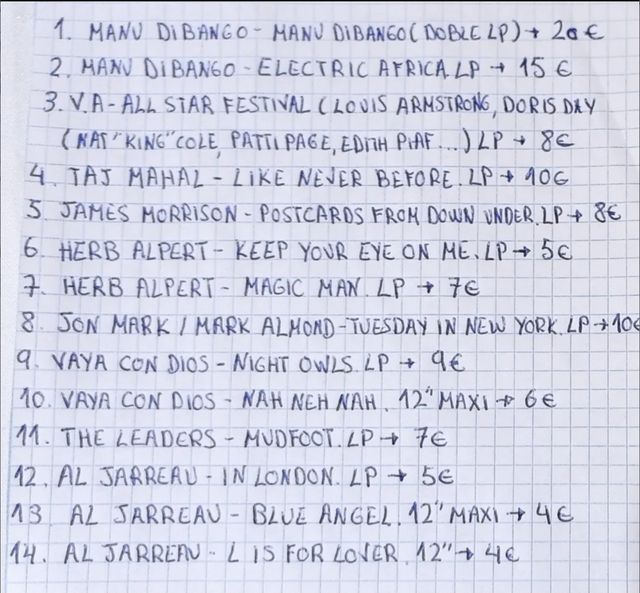 1. MANU DIBANGO - MANU DIBANGO (DOBLE LP) → 20 €
2. MANU DIBANGO - ELECTRIC AFRICA. LP → 15 €
3. V.A - ALL STAR FESTIVAL (LOUIS ARMSTRONG, DORIS DAY
(NAT "KING" COLE, PATTI PAGE, EDITH PIAF...) LP → 8€
4. TAJ MAHAL - LIKE NEVER BEFORE. LP → 10€
5. JAMES MORRISON - POSTCARDS FROM DOWN UNDER. LP → 8€
6. HERB ALPERT - KEEP YOUR EYE ON ME. LP → 5€
7. HERB ALPERT - MAGIC MAN. LP → 7€
8. JON MARK / MARK ALMOND - TUESDAY IN NEW YORK. LP → 10€
9. VAYA CON DIOS - NIGHT OWLS. LP → 9€
10. VAYA CON DIOS - NAH NEH NAH. 12" MAXI → 6€
11. THE LEADERS - MUDFOOT. LP → 7€
12. AL JARREAU - IN LONDON. LP → 5€
13 AL JARREAU - BLUE ANGEL. 12" MAXI → 4€
14. AL JARREAU - L IS FOR LOVER. 12" → 4€